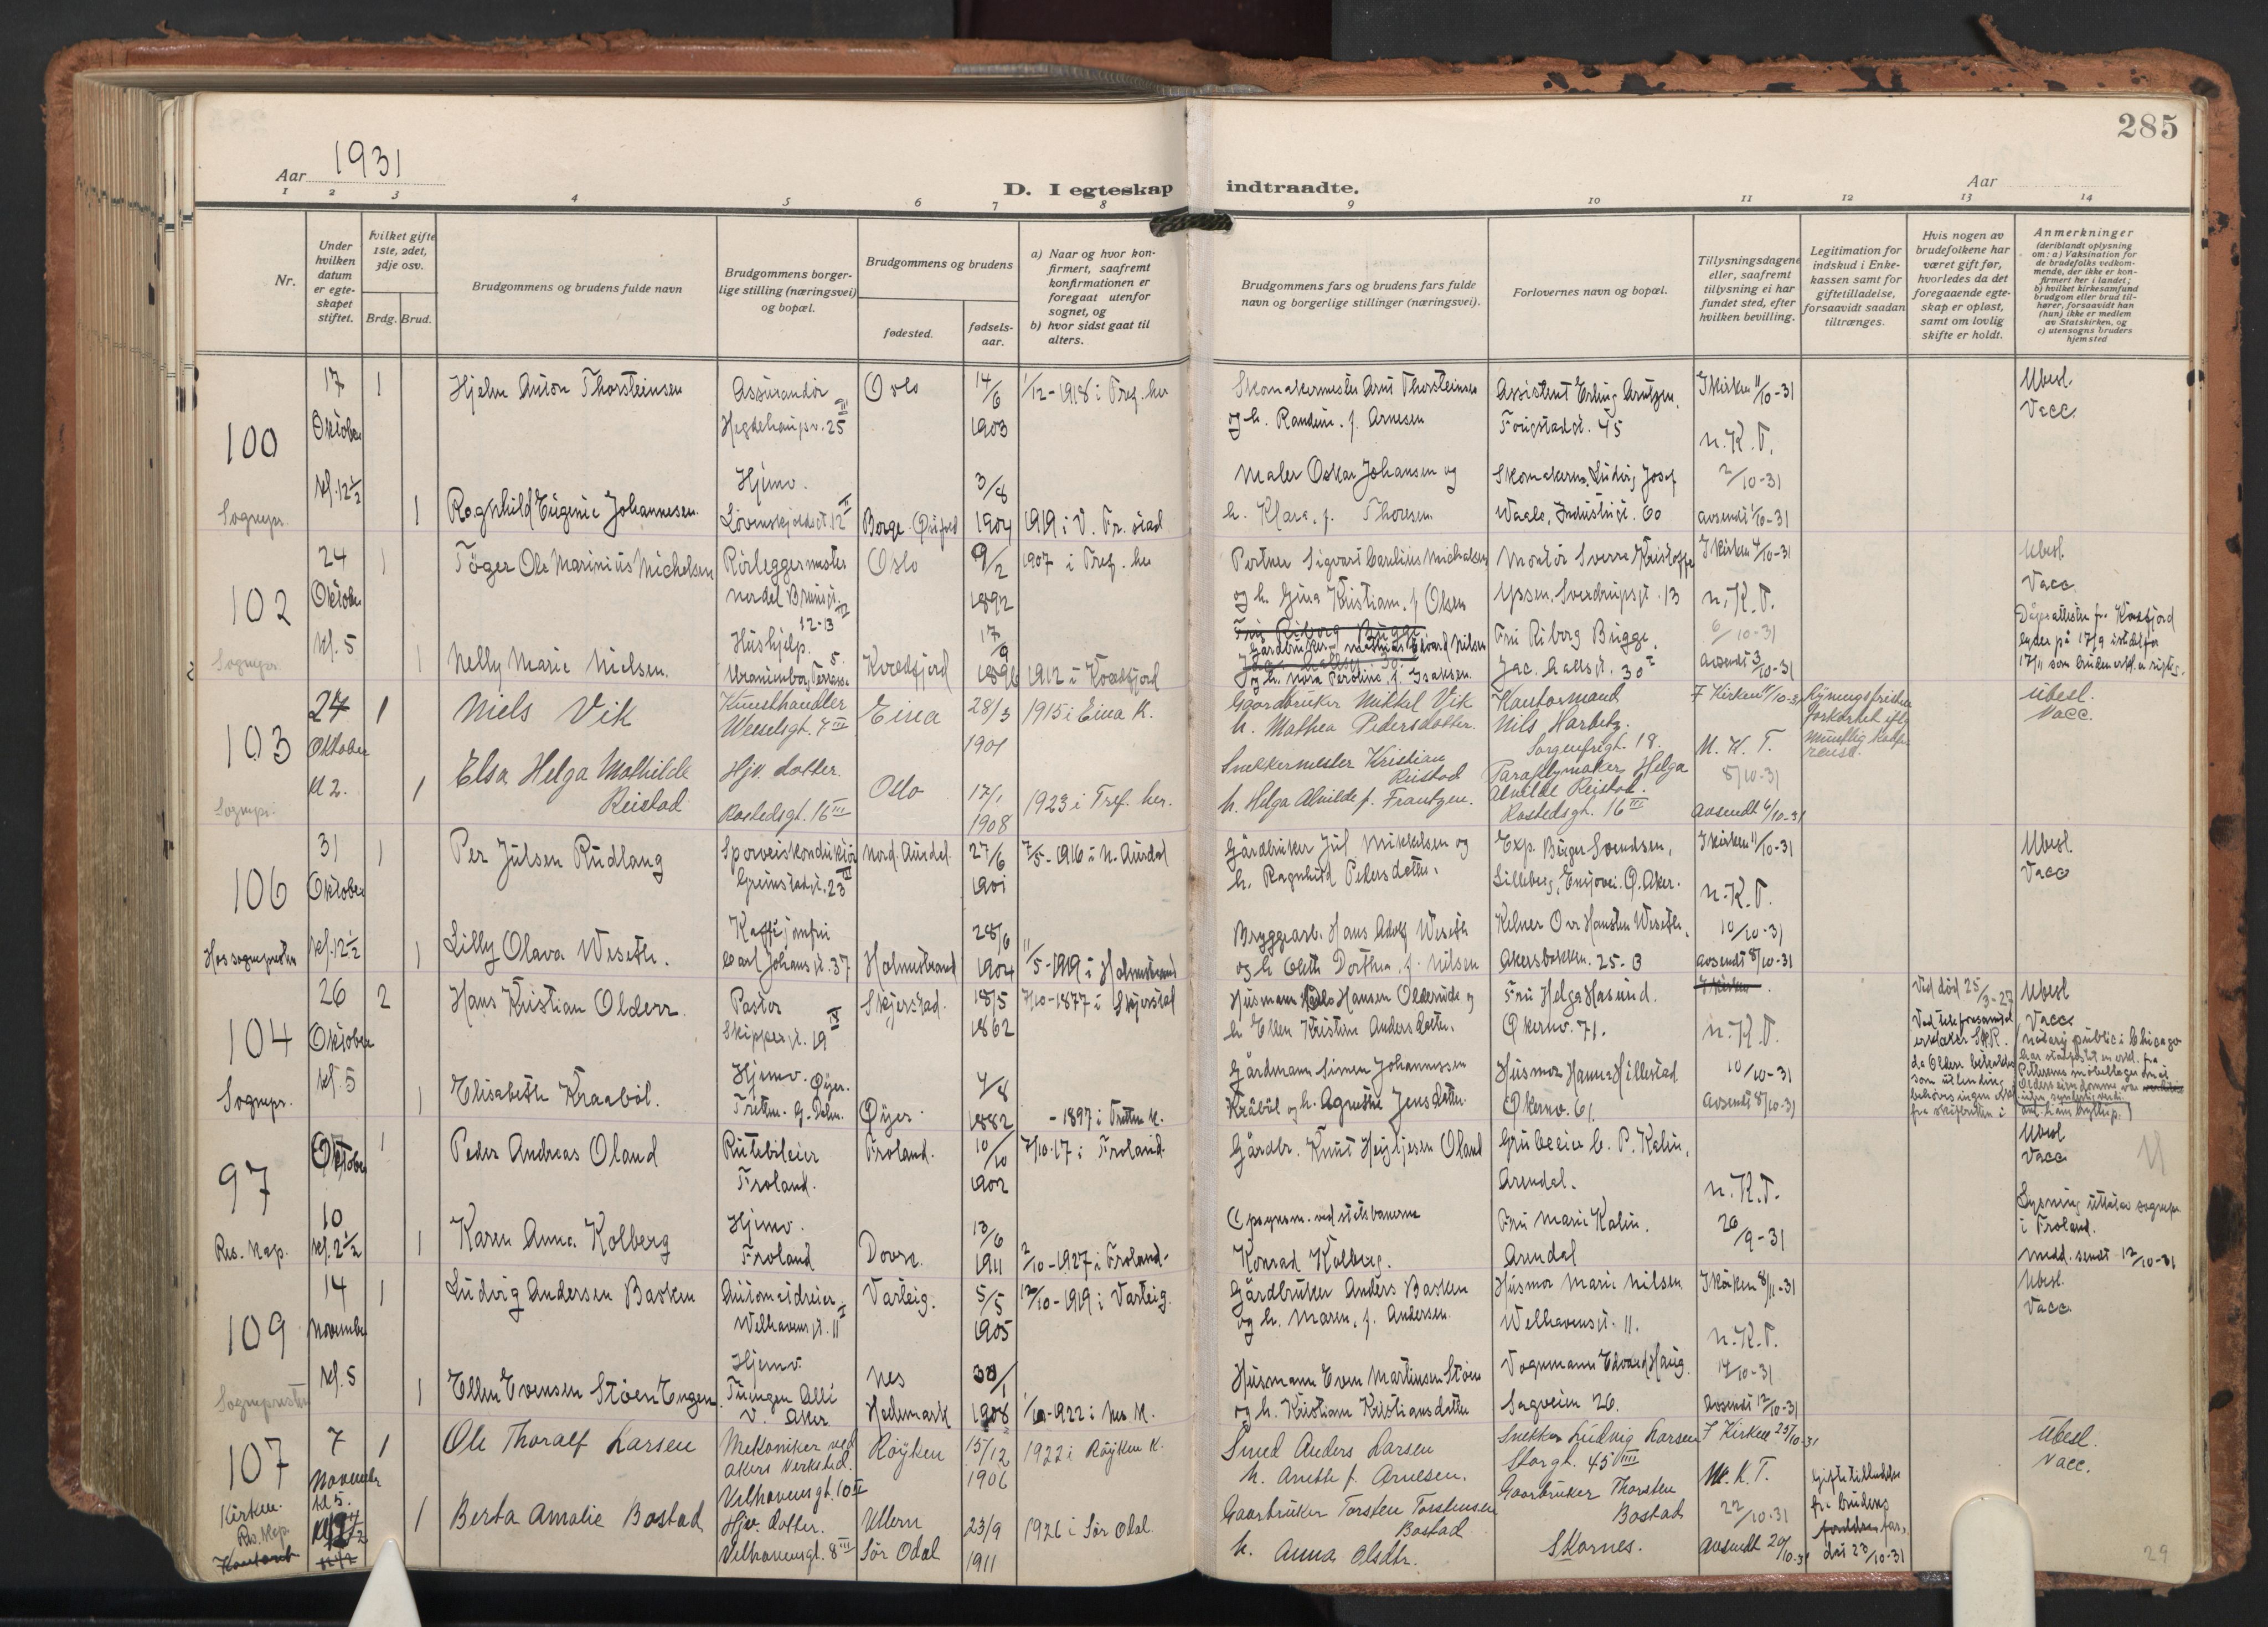 285
Aar 1931
D. I egteskap indtraadte.
Aar
1 2 3 4 5 6 7 8 9 10 11 12 13 14
Nr.
Under hvilken datum er egteskapet stiftet.
Hvilket gifte 1ste, 2det, 3dje osv.
Brdg. Brud.
Brudgommens og brudens fulde navn
Brudgommens borgerlige stilling (næringsvei) og bopæl.
Brudgommens og brudens
fødested.
fødselsaar.
a) Naar og hvor konfirmert, saafremt konfirmationen er foregaat utenfor sognet, og
b) hvor sidst gaat til alters.
Brudgommens fars og brudens fars fulde navn og borgerlige stillinger (næringsvei).
Forlovernes navn og bopæl.
Tillysningsdagene eller, saafremt tillysning ei har fundet sted, efter hvilken bevilling.
Legitimation for indskud i Enkekassen samt for giftetilladelse, forsaavidt saadan tiltrænges.
Hvis nogen av brudefolkene har været gift før, hvorledes da det foregaaende egteskap er opløst, samt om lovlig skifte er holdt.
Anmerkninger
(deriblandt oplysning om: a) Vaksination for de brudefolks vedkommende, der ikke er konfirmert her i landet; b) hvilket kirkesamfund brudgom eller brud tilhører, forsaavidt han (hun) ikke er medlem av Statskirken, og c) utensogns bruders hjemsted
100
17 Oktober kl. 12½
Sognepr.
1 Hjalm Anton Thorsteinsen
Assurandør
Hegdehaugsv. 25 III
Oslo
14/6 1903
1/12-1918 i Tref. her
Skomakermester Arnt Thorsteinsen
og h. Randine f. Arnesen
Assistent Erling Arntzen,
Fougstadgt. 45
I kirken 11/10-31
n.K.T.
Ubesl.
Vacc.
1 Ragnhild Eugenie Johannesen
Hjemv.
Løvenskjoldsgt. 12 II
Borge Østfold
3/8 1904
1919 i V. Fr. stad
Maler Oskar Johansen og
h. Klara, f. Thoresen
Skomakerm. Ludvig Josef
Waale, Industrigt. 60
2/10-31
avsendt 1/10-31
102
24 Oktober kl. 5
Sognepr.
1 Töger Ole Marinius Michelsen
Rörleggermester
Nordal Brunsgt. 12-13 III
Oslo
9/2 1892
1907 i Tref. her
Portner Sigvart Carelius Michelsen
og h. Gina Kristiane, f. Olsen
Montør Sverre Kristoffer
Ypsen, Sverdrupsgt. 13
I kirken 4/10-31
n.K.T.
Ubesl.
Vacc.
1 Nelly Marie Nielsen.
Hushjelp.
Uranienborg Terrasse 5.
Kvædfjord
17/9 1896
1912 i Kvædfjord
Gårdbruker Mathias Edvard Nilsen
og h. Nora Peroline, f. Isaksen.
Fru Riborg Brügge,
Jac. Aallsgt. 30 I
6/10-31
avsendt 3/10-31
Dåpsattesten fr. Kvædfjord
lyder på 17/9 istedetfor
17/11 som bruden erkl. er rigtig.
103
24 Oktober kl 2.
Sognepr.
1 Niels Vik
Kunsthandler
Wesselsgt. 4 III
Eina
28/3 1901
1915 i Eina K.
Gaardbruker Mikkel Vik
h. Mathea Pedersdatter.
Kontormand
Nils Harbitz.
Sorgenfrigt. 18.
I Kirken 11/10-31
M. K. T.
Lysningsfristen
forkortet efter
Ubesl.
Vacc.
1 Elsa Helga Mathilde
Reistad
Hjv. datter.
Rostedsgt. 16 III
Oslo
17/1 1908
1923 i Tref. her.
Snekkermester Kristian
Reistad
h. Helga Alvilde f. Frantzen.
Paraplymaker Helga
Alvilde Reistad.
Rostedsgt. 16 III
8/10-31
avsendt 6/10-31
106
31 Oktober kl. 12½
Hos sognepresten
1 Per Julsen Rudlang
Sporveiskonduktør
Grimstadgt. 23 III
Nord. Aurdal
27/6 1901
7/5-1916 i N. Aurdal
Gårdbruker Jul Mikkelsen og
h. Ragnhild Pedersdatter.
Exp. Birger Svendsen,
Lilleberg, Ensjøvei. Ø. Aker.
I kirken 11/10-31
n.K.T.
Ubesl.
Vacc
1 Lilly Olava Weseth.
Kaffejomfru
Carl Johans gt. 37
Holmestrand
28/6 1904
11/5-1919 i Holmestrand
Bryggearb. Hans Adolf Weseth
og h. Oleth Dorthea, f. Nilsen
Kelner Ove Hansten Weseth,
Akersbakken. 25-B
10/10-31
avsendt 8/10-31
104
26 Oktober kl. 5
Sognepr.
2 Hans Kristian Olderr.
Pastor
Skippergt. 19 IV
Skjerstad.
18/5 1862
7/10-1877 i Skjerstad
Husmann Hansen Olderuide og
h. Ellen Kristine Andersdatter.
Fru Helga Hasund.
Økernv. 71.
n.K.T.
Ved död 25/3-27
Ubesl
Vacc.
notary public i Chicago
1 Elisabeth Kraaböl.
Hjemv. Øyer.
Tretten. G. Dalen.
Øyer
4/8 1882
- 1897 i Tretten K.
Gårdmann Simen Johannessen
Kråböl og h. Agnethe Jensdatter
Husmor Hanna Hillestad
Økernv. 61.
10/10-31
avsendt 8/10-31
97
Oktober 10 kl. 2½
Res. kap.
1 Peder Andreas Oland
Rutebileier
Froland.
Froland.
10/10 1902
7/10-17 i Froland
Gårdbr. Knut Heigtjesen Oland
Grubeeier C. P. Kalin,
Arendal.
n.K.T.
Ubesl
Vacc
1 Karen Anna Kolberg
Hjemv.
Froland
Dovre
13/6 1911
2/10-1927 i Froland.
Opsynsm. ved statsbanerne
Konrad Kolberg.
Fru Marie Kalin.
Arendal
26/9-31
Lysning uttatar sognepr.
i Froland.
Medd. sendt 12/10-31
109
14 November kl. 5
Sognepresten
1 Ludvig Andersen Basken
Automateier
Welhavensgt. 11 I
Varteig.
5/5 1905
12/10-1919 i Varteig.
Gårdbruker Anders Basken
og h. Maren, f. Andersen.
Husmor Marie Nilsen
Welhavensgt. 11.
I kirken 8/11-31
n.K.T.
Ubesl.
Vacc.
1 Ellen Evensen Støen Engen
Hjemv.
Tuengen Allé
V. Aker
Nes
Hedemark
1908
1/10-1922 i Nes K.
Husmann Even Martinsen Støen
og h. Kristiane Kristiansdatter
Vognmann Edvard Haug.
Sagveien 26.
14/10-31
Avsendt 12/10-31
107
7 November kl 5.
Kirken.
Res. Kap.
1 Ole Thoralf Larsen
Mekaniker ved
Akers Verksted.
Velhavensgt. 10 II
Røyken
15/12 1906
1922 i Røyken K.
Smed Anders Larsen
h. Anette f. Arnesen.
Snekker Ludvig Larsen
Storgt. 45 IIII
I Kirken 25/10-31
M. K. T.
Giftetilladelse
fra brudens
far,
dat 23/10-31
Ubesl.
Vacc.
1 Berta Amalie Bostad
Hjv. datter.
Velhavensgt. 8 III
Ullern
Sør Odal
23/9 1911
1926 i Sør Odal.
Gaardbruker Torsten Torstensen
Bostad
h. Anna Olsdtr.
Gaardbruker Thorsten
Bostad
Skarnes.
22/10-31
avsendt 20/10-31
29